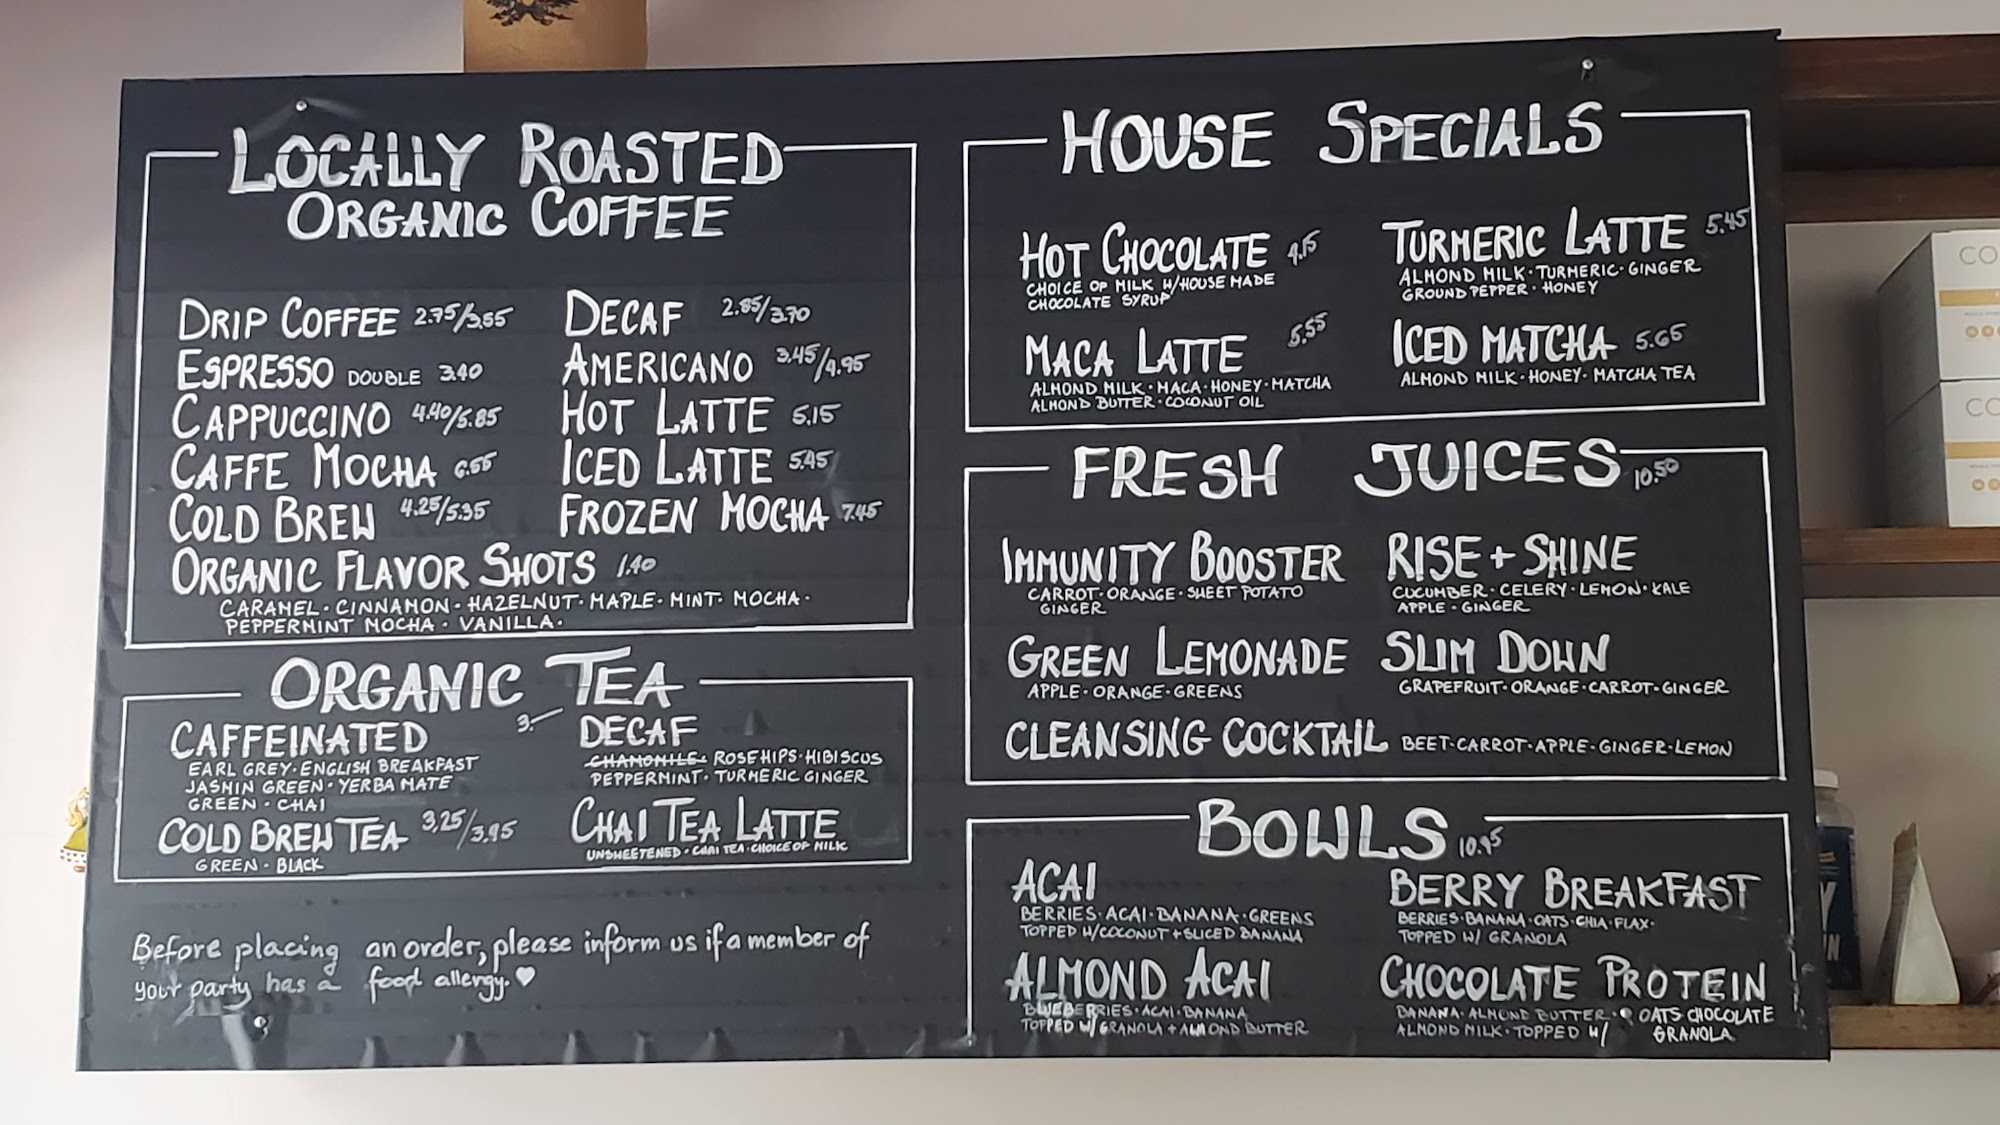 LOCALLY ROASTED
ORGANIC COFFEE
DRIP COFFEE 2.75/3.55
ESPRESSO DOUBLE 3.40
CAPPUCCINO 4.40/5.85
CAFFE MOCHA 6.55
COLD BREW 4.25/5.35
DECAF 2.85/3.70
AMERICANO 3.45/4.95
HOT LATTE 5.15
ICED LATTE 5.45
FROZEN MOCHA 7.45
ORGANIC FLAVOR SHOTS 1.40
CARAMEL · CINNAMON · HAZELNUT · MAPLE · MINT · MOCHA ·
PEPPERMINT MOCHA · VANILLA ·
ORGANIC TEA
3.—
CAFFEINATED
EARL GREY · ENGLISH BREAKFAST
JASMIN GREEN · YERBA MATE
GREEN · CHAI
COLD BREW TEA 3,25/3.95
GREEN · BLACK
DECAF
CHAMOMILE · ROSEHIPS · HIBISCUS
PEPPERMINT · TURMERIC GINGER
CHAI TEA LATTE
UNSWEETENED · CHAI TEA · CHOICE OF MILK
Before placing an order, please inform us if a member of
your party has a food allergy. ♥
HOUSE SPECIALS
HOT CHOCOLATE 4.15
CHOICE OF MILK W/HOUSE MADE
CHOCOLATE SYRUP
MACA LATTE 5.55
ALMOND MILK · MACA · HONEY · MATCHA
ALMOND BUTTER · COCONUT OIL
TURMERIC LATTE 5.45
ALMOND MILK · TURMERIC · GINGER
GROUND PEPPER · HONEY
ICED MATCHA 5.65
ALMOND MILK · HONEY · MATCHA TEA
FRESH JUICES 10.50
IMMUNITY BOOSTER
CARROT · ORANGE · SWEET POTATO
GINGER
RISE + SHINE
CUCUMBER · CELERY · LEMON · KALE
APPLE · GINGER
GREEN LEMONADE
APPLE · ORANGE · GREENS
SLIM DOWN
GRAPEFRUIT · ORANGE · CARROT · GINGER
CLEANSING COCKTAIL BEET · CARROT · APPLE · GINGER · LEMON
BOWLS 10.95
ACAI
BERRIES · ACAI · BANANA · GREENS
TOPPED W/COCONUT + SLICED BANANA
BERRY BREAKFAST
BERRIES · BANANA · OATS · CHIA · FLAX ·
TOPPED W/ GRANOLA
ALMOND ACAI
BLUEBERRIES · ACAI · BANANA
TOPPED W/ GRANOLA + ALMOND BUTTER
CHOCOLATE PROTEIN
BANANA · ALMOND BUTTER · OATS CHOCOLATE
ALMOND MILK · TOPPED W/ GRANOLA
CO
CO